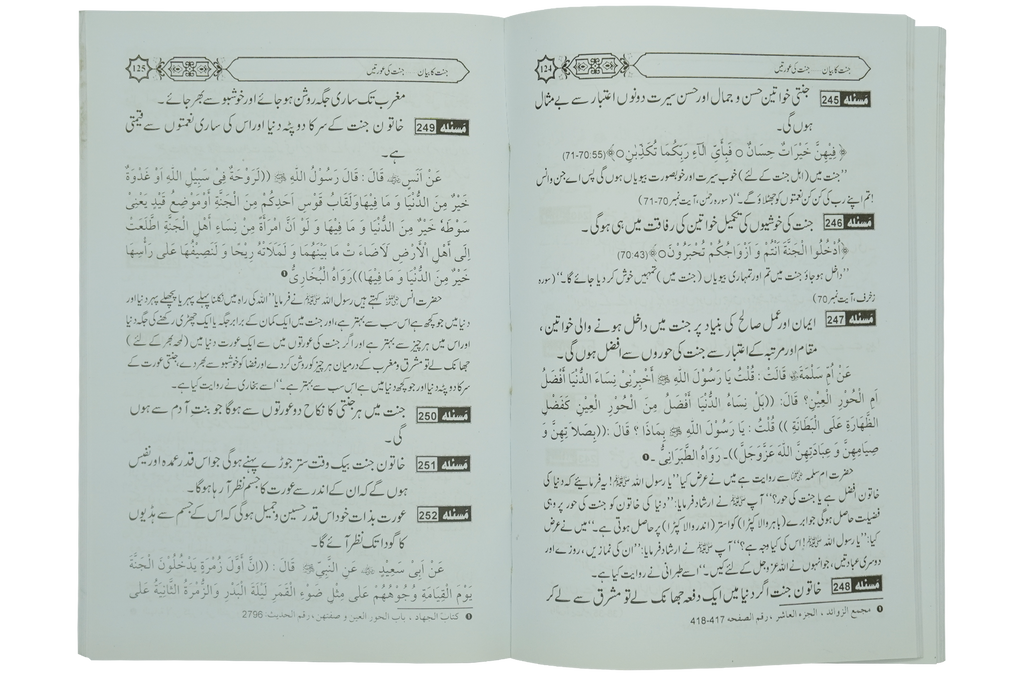 جنت کا بیان — جنت کی عورتیں
124
مسئلہ 245 جنتی خواتین حسن و جمال اور حسن سیرت دونوں اعتبار سے بے مثال
ہوں گی۔
﴿ فِيهِنَّ خَيْرَاتٌ حِسَانٌ ○ فَبِأَيِّ آلَاءِ رَبِّكُمَا تُكَذِّبٰنِ○﴾(71-70:55)
”جنت میں (اہل جنت کے لئے) خوب سیرت اور خوبصورت بیویاں ہوں گی پس اے جن و انس
!تم اپنے رب کی کن کن نعمتوں کو جھٹلاؤ گے۔“ (سورہ رحمٰن، آیت نمبر 70-71)
مسئلہ 246 جنت کی خوشیوں کی تکمیل خواتین کی رفاقت میں ہی ہوگی۔
﴿أُدْخُلُوا الْجَنَّةَ أَنْتُمْ وَ أَزْوَاجُكُمْ تُحْبَرُوْنَ○﴾(70:43)
”داخل ہوجاؤ جنت میں تم اور تمہاری بیویاں (جنت میں) تمہیں خوش کر دیا جائے گا۔“ (سورہ
زخرف، آیت نمبر 70)
مسئلہ 247 ایمان اور عمل صالح کی بنیاد پر جنت میں داخل ہونے والی خواتین،
مقام اور مرتبہ کے اعتبار سے جنت کی حوروں سے افضل ہوں گی۔
عَنْ أُمِّ سَلْمَةَ ؓ قَالَتْ : قُلْتُ يَا رَسُوْلَ اللّٰهِ ﷺ أَخْبِرْنِيْ نِسَاءُ الدُّنْيَا أَفْضَلُ
أَمِ الْحُوْرِ الْعِيْنِ؟ قَالَ: ((بَلْ نِسَاءُ الدُّنْيَا أَفْضَلُ مِنَ الْحُوْرِ الْعِيْنِ كَفَضْلِ
الظِّهَارَةِ عَلَى الْبَطَانَةِ )) قُلْتُ : يَا رَسُوْلَ اللّٰهِ ﷺ بِمَاذَا ؟ قَالَ :((بِصَلاَ تِهِنَّ وَ
صِيَامِهِنَّ وَ عِبَادَتِهِنَّ اللّٰهَ عَزَّوَجَلَّ))۔ رَوَاهُ الطَّبَرَانِيُّ ۔❶
حضرت ام سلمہ ؓ سے روایت ہے میں نے عرض کیا ”یا رسول اللہ ﷺ! یہ فرمائیے کہ دنیا کی
خاتون افضل ہے یا جنت کی حور؟“ آپ ﷺ نے ارشاد فرمایا: ”دنیا کی خاتون کو جنت کی حور پر وہی
فضیلت حاصل ہوگی جو ابرے (باہر والا کپڑا) کو استر (اندر والا کپڑا) پر حاصل ہوتی ہے۔“ میں نے عرض
کیا: ”یا رسول اللہ ﷺ! اس کی کیا وجہ ہے؟“ آپ ﷺ نے ارشاد فرمایا: ”ان کی نمازیں، روزے اور
دوسری عبادتیں، جو انہوں نے اللہ عزوجل کے لئے کیں۔“ اسے طبرانی نے روایت کیا ہے۔
مسئلہ 248 خاتون جنت اگر دنیا میں ایک دفعہ جھانک لے تو مشرق سے لے کر
❶ مجمع الزوائد ، الجزء العاشر ، رقم الصفحه 417-418
جنت کا بیان — جنت کی عورتیں
125
مغرب تک ساری جگہ روشن ہو جائے اور خوشبو سے بھر جائے۔
مسئلہ 249 خاتون جنت کے سر کا دوپٹہ دنیا اور اس کی ساری نعمتوں سے قیمتی
ہے۔
عَنْ أَنَسٍ ؓ قَالَ : قَالَ رَسُوْلُ اللّٰهِ ﷺ ((لَرَوْحَةٌ فِيْ سَبِيْلِ اللّٰهِ أَوْ غَدْوَةٌ
خَيْرٌ مِنَ الدُّنْيَا وَ مَا فِيهَا وَلَقَابُ قَوْسِ أَحَدِكُمْ مِنَ الْجَنَّةِ أَوْ مَوْضِعُ قَيْدٍ يَعْنِيْ
سَوْطَهُ خَيْرٌ مِنَ الدُّنْيَا وَ مَا فِيهَا وَ لَوْ أَنَّ امْرَأَةً مِنْ نِسَاءِ أَهْلِ الْجَنَّةِ اطَّلَعَتْ
إِلَى أَهْلِ الْأَرْضِ لَاَضَاءَ تْ مَا بَيْنَهُمَا وَ لَمَلَأَتْهُ رِيْحًا وَ لَنَصِيْفُهَا عَلَى رَأْسِهَا
خَيْرٌ مِنَ الدُّنْيَا وَ مَا فِيهَا))رَوَاهُ الْبُخَارِيُّ ❶
حضرت انس ؓ کہتے ہیں رسول اللہ ﷺ نے فرمایا ”اللہ کی راہ میں نکلنا پہلے پہر یا پچھلے پہر دنیا اور
دنیا میں جو کچھ ہے اس سب سے بہتر ہے، اور جنت میں ایک کمان کے برابر جگہ یا ایک چھڑی رکھنے کی جگہ دنیا
اور اس میں ہر چیز سے بہتر ہے اور اگر جنت کی عورتوں میں سے ایک عورت دنیا میں (لمحہ بھر کے لئے)
جھانک لے تو مشرق و مغرب کے درمیان ہر چیز کو روشن کر دے اور فضا کو خوشبو سے بھر دے، جنتی عورت کے
سر کا دوپٹہ دنیا اور جو کچھ دنیا میں ہے اس سب سے بہتر ہے۔“ اسے بخاری نے روایت کیا ہے۔
مسئلہ 250 جنت میں ہر جنتی کا نکاح دو عورتوں سے ہوگا جو بنتِ آدم سے ہوں
گی۔
مسئلہ 251 خاتون جنت بیک وقت ستر جوڑے پہنے ہوگی جو اس قدر عمدہ اور نفیس
ہوں گے کہ ان کے اندر سے عورت کا جسم نظر آ رہا ہوگا۔
مسئلہ 252 عورت بذات خود اس قدر حسین و جمیل ہوگی کہ اس کے جسم سے ہڈیوں
کا گودا تک نظر آئے گا۔
عَنْ أَبِيْ سَعِيْدٍ ؓ عَنِ النَّبِيِّ ﷺ قَالَ : ((إِنَّ أَوَّلَ زُمْرَةٍ يَدْخُلُوْنَ الْجَنَّةَ
يَوْمَ الْقِيَامَةِ وُجُوْهُهُمْ عَلَى مِثْلِ ضَوْءِ الْقَمَرِ لَيْلَةَ الْبَدْرِ وَالزُّمْرَةُ الثَّانِيَةُ عَلَى
❶ كتاب الجهاد ، باب الحور العين و صفتهن ، رقم الحديث: 2796